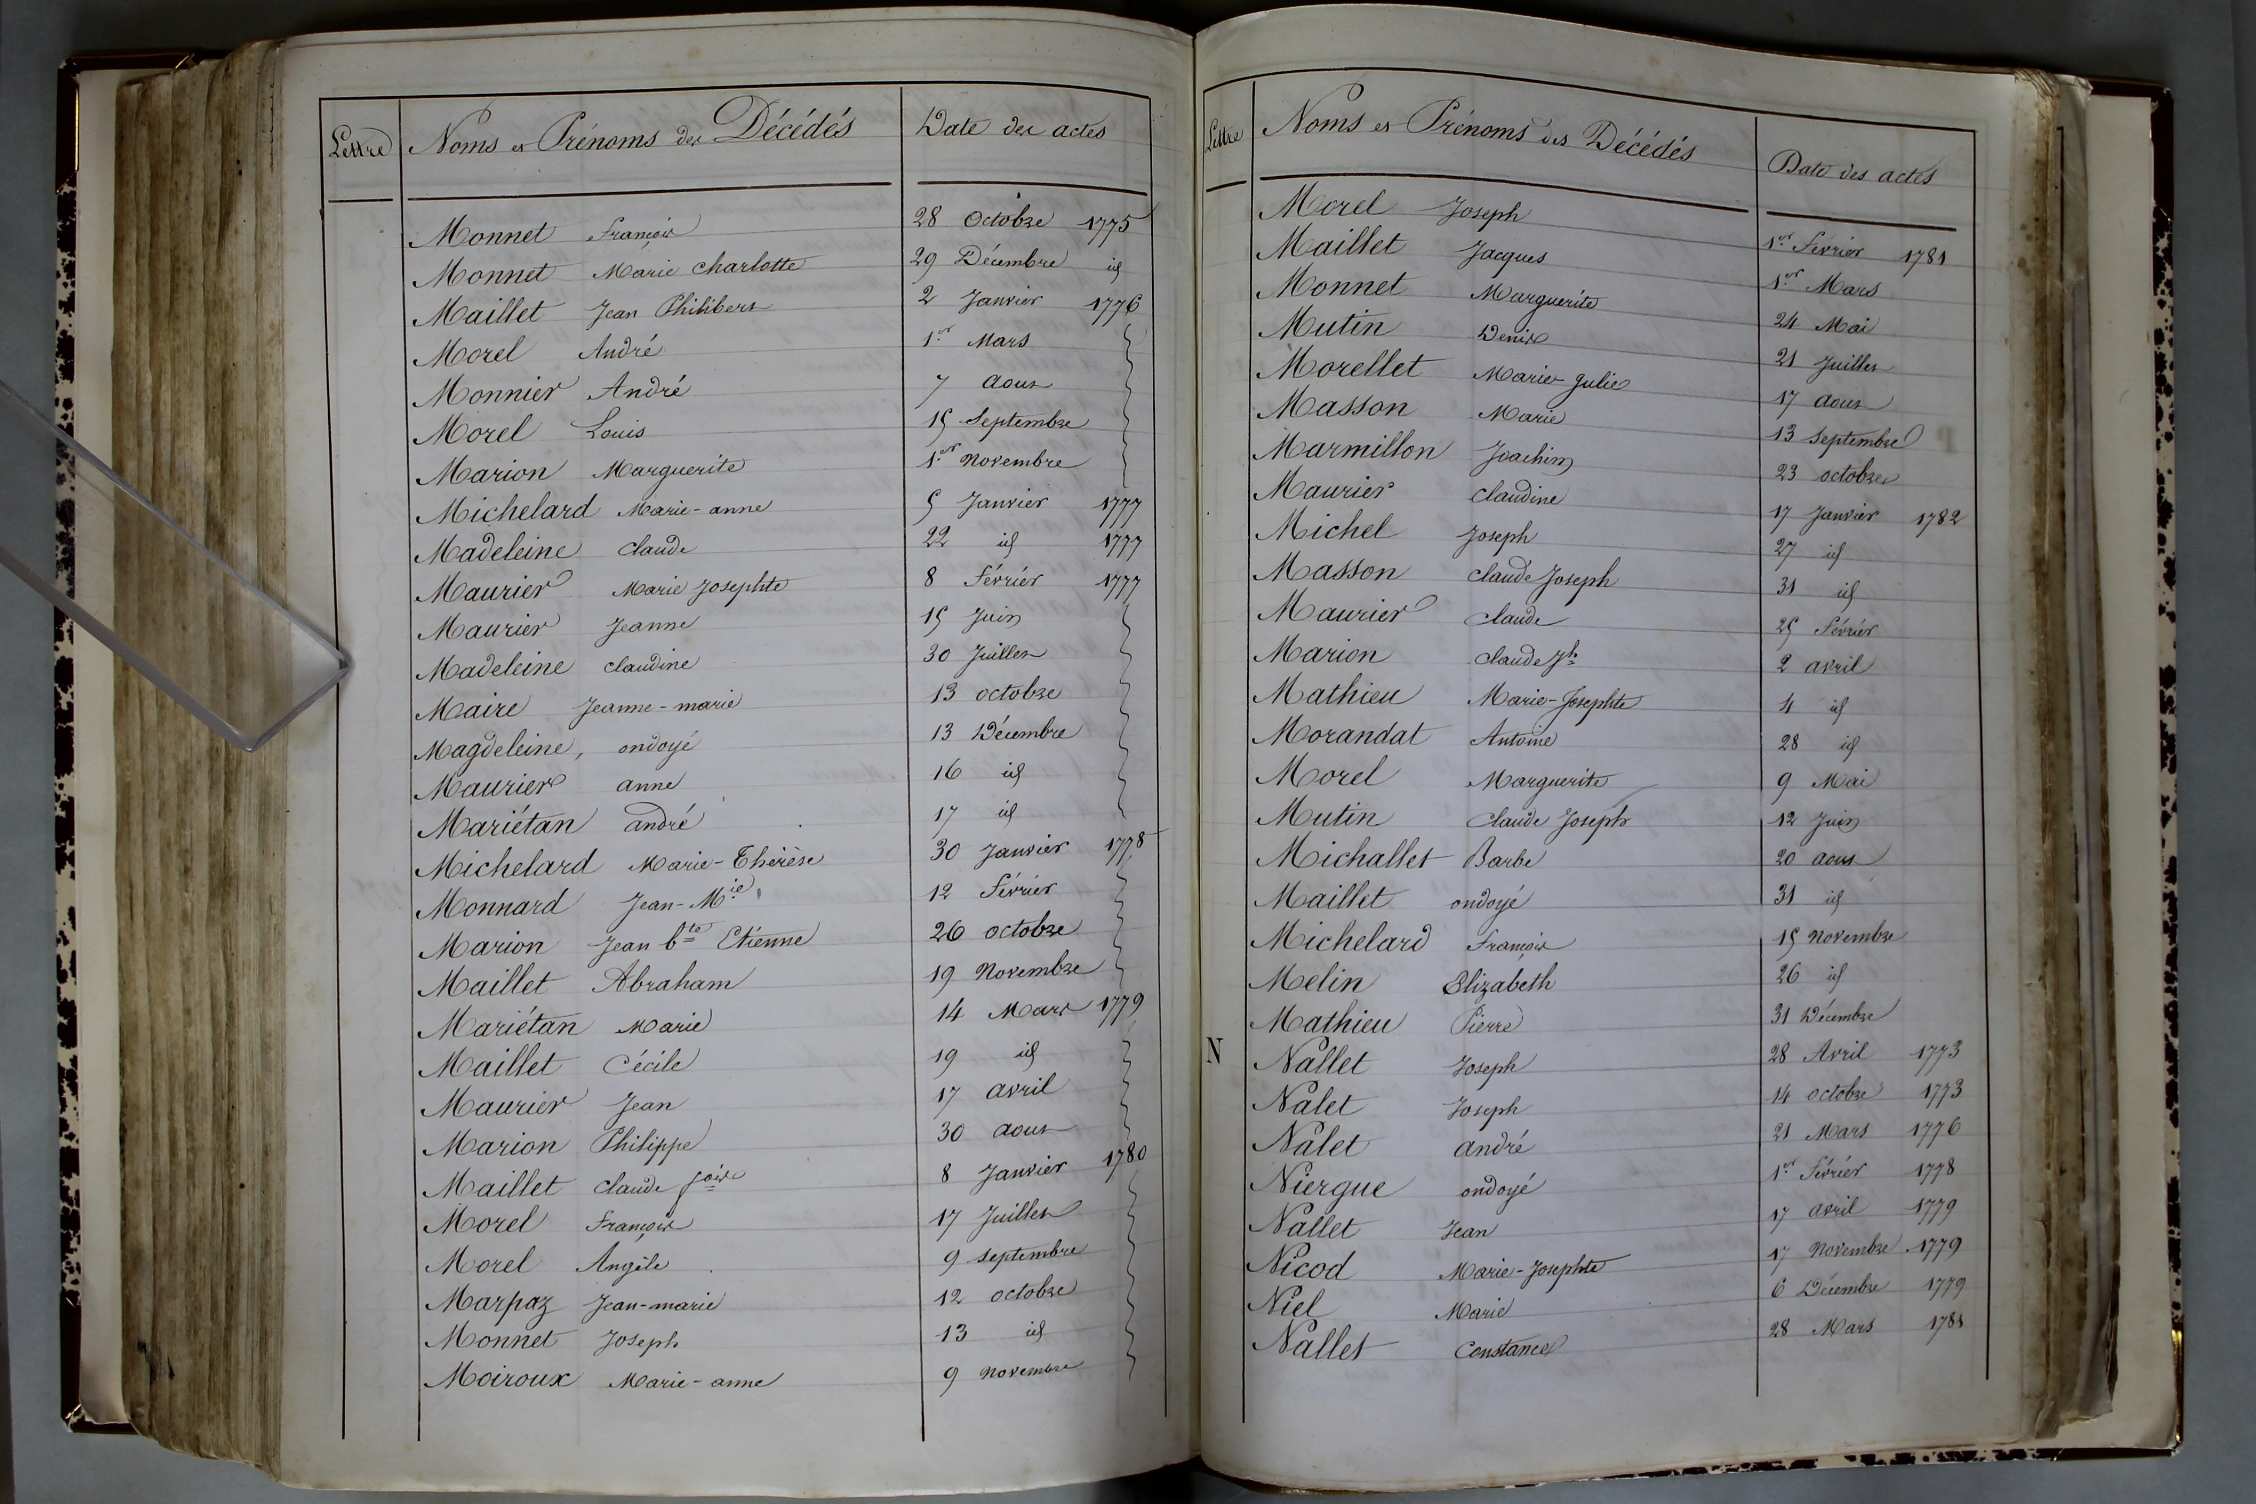 Lettre Noms et Prénoms des Décédés Date des actes
Monnet François 28 Octobre 1775
Monnet Marie Charlotte 29 Décembre id
Maillet Jean Philibert 2 Janvier 1776
Morel André 1er Mars
Monnier André 7 aout
Morel Louis 15 Septembre
Marion Marguerite 1er Novembre
Michelard Marie-anne 5 Janvier 1777
Madeleine Claude 22 id 1777
Maurier Marie Josephte 8 Février 1777
Maurier Jeanne 15 Juin
Madeleine Claudine 30 Juillet
Maire Jeanne-marie 13 octobre
Magdeleine, ondoyé 13 Décembre
Maurier anne 16 id
Mariétan andré 17 id
Michelard Marie-Thérèse 30 Janvier 1778
Monnard Jean-Mie 12 Février
Marion Jean bte Etienne 26 octobre
Maillet Abraham 19 Novembre
Mariétan Marie 14 Mars 1779
Maillet Cécile 19 id
Maurier Jean 17 avril
Marion Philippe 30 aout
Maillet Claude fois 8 Janvier 1780
Morel François 17 Juillet
Morel Angèle 9 Septembre
Marpaz Jean-marie 12 octobre
Monnet Joseph 13 id
Moiroux Marie-anne 9 Novembre
Lettre Noms et Prénoms des Décédés Date des actes
Morel Joseph 1er Février 1781
Maillet Jacques 1er Mars
Monnet Marguerite 24 Mai
Mutin Denis 21 Juillet
Morellet Marie-Julie 17 aout
Masson Marie 13 Septembre
Marmillon Joachim 23 octobre
Maurier Claudine 17 Janvier 1782
Michel Joseph 27 id
Masson Claude Joseph 31 id
Maurier Claude 25 Février
Marion Claude Jh 2 avril
Mathieu Marie-Josephte 4 id
Morandat Antoine 28 id
Morel Marguerite 9 Mai
Mutin Claude Joseph 12 Juin
Michallet Barbe 20 aout
Maillet ondoyé 31 id
Michelard François 15 Novembre
Melin Elizabeth 26 id
Mathieu Pierre 31 Décembre
N Nallet Joseph 28 Avril 1773
Nalet Joseph 14 octobre 1773
Nalet andré 21 Mars 1776
Niergue ondoyé 1er Février 1778
Nallet Jean 17 avril 1779
Nicod Marie-Josephte 17 Novembre 1779
Niel Marie 6 Décembre 1779
Nallet Constance 28 Mars 1781